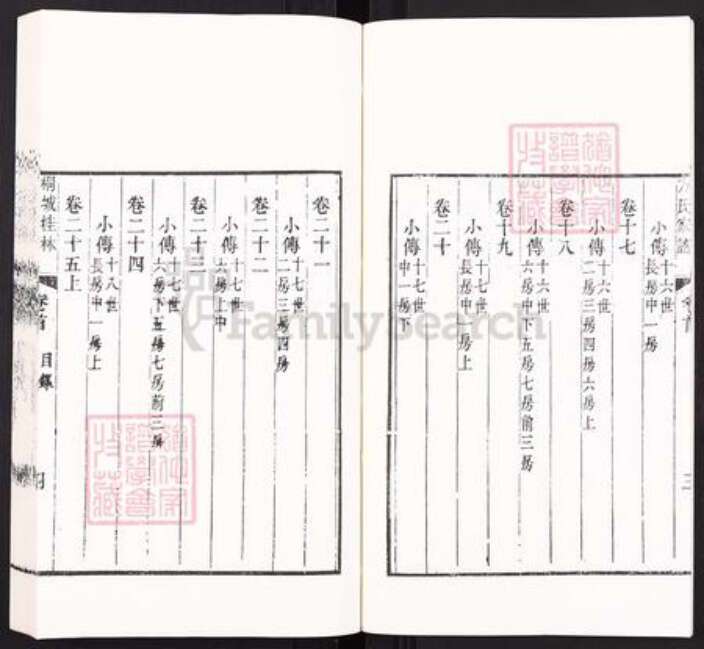 氏家譜 卷首 三
小傳 十六世
長房中一房
卷十七
小傳 十六世
二房三房四房六房上
卷十八
小傳 十六世
六房中下五房七房前三房
卷十九
小傳 十七世
長房中一房上
卷二十
小傳 十七世
中一房下
卷二十一
小傳 十七世
二房三房四房
卷二十二
小傳 十七世
六房上中
卷二十三
小傳 十七世
六房下五房七房前三房
卷二十四
小傳 十八世
長房中一房上
卷二十五上
桐城桂林 卷首 目錄
FamilySearch